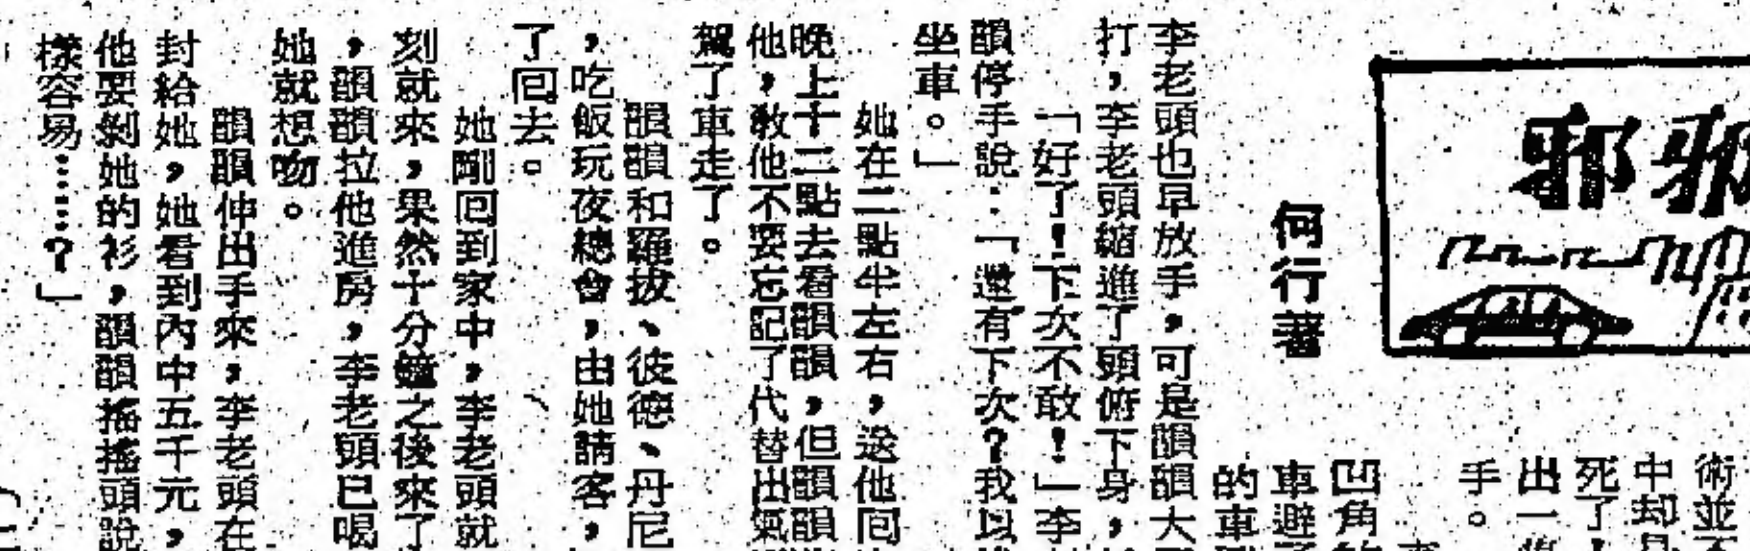 邪邪
何行著
術並不
中却
死了
出一
手。
凹角的
車避了
的車
李老頭也早放手，可是韻韻大
打，李老頭縮進了頭俯下身，
「好了！下次不敢！」李
韻停手說：「還有下次？我以
坐車。」
她在二點半左右，送他囘
晚上十二點去看韻韻，但韻韻
他，敎他不要忘記了代替出氣
駕了車走了。
韻韻和羅拔、彼德、丹尼
，吃飯玩夜總會，由她請客，
了囘去。
她剛囘到家中，李老頭就
刻就來，果然十分鐘之後來了
，韻韻拉他進房，李老頭已喝
她就想吻。
韻韻伸出手來，李老頭在
封給她，她看到內中五千元，
他要剝她的衫，韻韻搖搖頭說
樣容易……？」